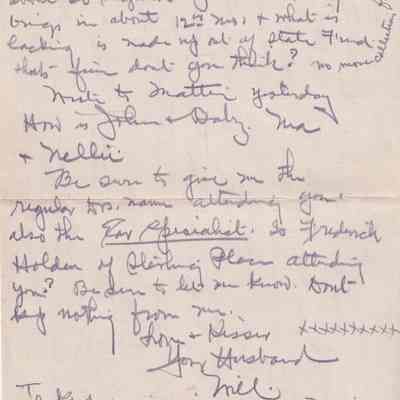 brings in about 12 mos. & what is
lacking is made up out of State Fund.
thats fine dont you think? no more
Wrote to Mattie yesterday
How is John & Baby. Ma
& Nellie.
Be sure to give me the
regular Drs. name attending you.
also the Ear Specialist. Is Frederick
Holden of Sterling Place attending
you? Be sure to let me know. Dont
keep nothing from me.
Love & Kisses xxxxxxxxxx
Your Husband
Will.